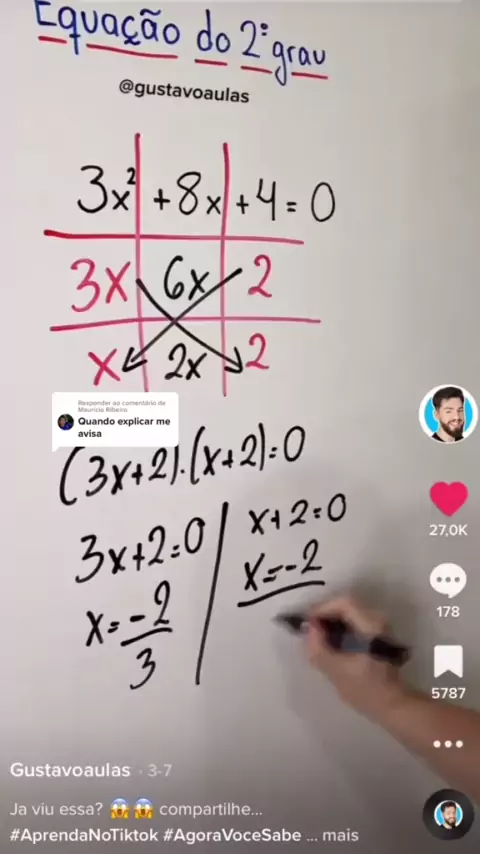 Equação do 2º grau
@gustavoaulas
3x² +8x +4=0
3x 6x 2
x 2x 2
Responder ao comentário de
Maurício Ribeiro
Quando explicar me
avisa
(3x+2).(x+2)=0
3x+2=0 x+2=0
x=-2 x=-2
3
27,0K
178
5787
Gustavoaulas · 3-7
Já viu essa? 😱😱 compartilhe...
#AprendaNoTiktok #AgoraVoceSabe ... mais